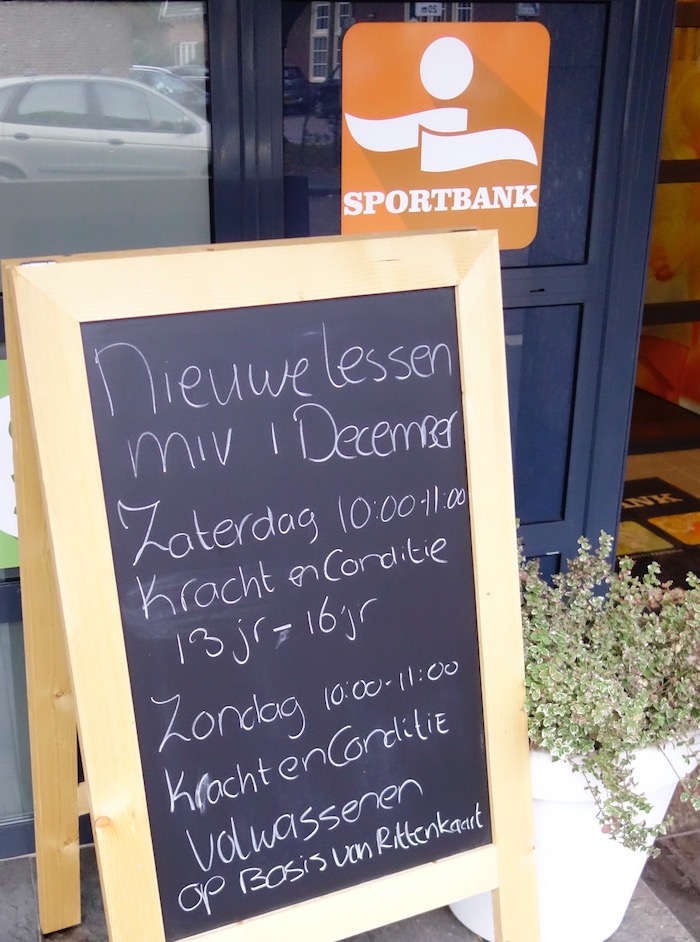 SPORTBANK
Nieuwe lessen
miv 1 December
Zaterdag 10:00-11:00
Kracht en Conditie
13 jr - 16 jr
Zondag 10:00-11:00
Kracht en Conditie
Volwassenen
op Basis van Rittenkaart
NK